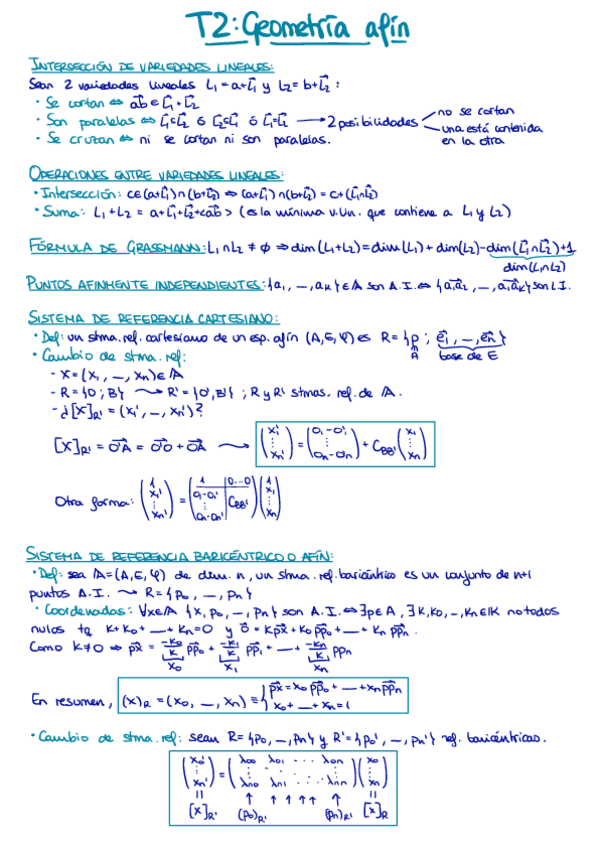 T2: Geometría afín
INTERSECCIÓN DE VARIEDADES LINEALES:
Sean 2 variedades lineales L₁ = a+L⃗₁ y L₂ = b+L⃗₂ :
• Se cortan ⇔ ab⃗ ∈ L⃗₁ + L⃗₂
• Son paralelas ⇔ L⃗₁⊆L⃗₂ ó L⃗₂⊆L⃗₁ ó L⃗₁=L⃗₂ → 2 posibilidades
no se cortan
una está contenida en la otra
• Se cruzan ⇔ ni se cortan ni son paralelas.
OPERACIONES ENTRE VARIEDADES LINEALES:
• Intersección: c∈(a+L⃗₁)∩(b+L⃗₂) ⇔ (a+L⃗₁)∩(b+L⃗₂) = c+(L⃗₁∩L⃗₂)
• Suma: L₁+L₂ = a+L⃗₁+L⃗₂+<ab⃗> (es la mínima v. lin. que contiene a L₁ y L₂)
FÓRMULA DE GRASSMANN: L₁∩L₂ ≠ ∅ ⇒ dim(L₁+L₂) = dim(L₁) + dim(L₂) - dim(L⃗₁∩L⃗₂)+1
dim(L₁∩L₂)
PUNTOS AFINMENTE INDEPENDIENTES: {a₁, —, aₖ}∈A son A.I. ⇔ {a₁a₂⃗, —, a₁aₖ⃗} son L.I.
SISTEMA DE REFERENCIA CARTESIANO:
• Def: un stma. ref. cartesiano de un esp. afín (A,E,φ) es R = {p ; e₁⃗, —, eₙ⃗}
A base de E
• Cambio de stma. ref:
- X = (x₁, —, xₙ) ∈ A
- R = {O; B} ⟶ R' = {O', B'} ; R y R' stmas. ref. de A.
- ¿[X]R' = (x₁', —, xₙ')?
[X]R' = O'A⃗ = O'O⃗ + OA⃗ ⟶ (x₁' ⋮ xₙ') = (o₁-o₁' ⋮ oₙ-oₙ') + C_BB' (x₁ ⋮ xₙ)
Otra forma: (1 x₁' ⋮ xₙ') = (1 | 0...0 ; o₁-o₁' ⋮ oₙ-oₙ' | C_BB') (1 x₁ ⋮ xₙ)
SISTEMA DE REFERENCIA BARICÉNTRICO O AFÍN:
• Def: sea A = (A,E,φ) de dim. n, un stma. ref. baricéntrico es un conjunto de n+1
puntos A.I. ⟶ R = {p₀, —, pₙ}
• Coordenadas: ∀x∈A {x, p₀, —, pₙ} son A.I. ⇔ ∃p∈A, ∃k,k₀,—,kₙ∈K no todos
nulos tq k+k₀+—+kₙ=0 y 0⃗ = kpx⃗ + k₀pp₀⃗ + — + kₙppₙ⃗.
Como k≠0 ⇒ px⃗ = -k₀/k pp₀⃗ + -k₁/k pp₁⃗ + — + -kₙ/k ppₙ
x₀ x₁ xₙ
En resumen, (x)R = (x₀, —, xₙ) ≡ { px⃗ = x₀pp₀⃗ + — + xₙppₙ⃗
x₀ + — + xₙ = 1
• Cambio de stma. ref: sean R = {p₀, —, pₙ} y R' = {p₀', —, pₙ'} ref. baricéntricas.
(x₀' ⋮ xₙ') = (λ₀₀ λ₀₁ ... λ₀ₙ ; ⋮ ; λₙ₀ λₙ₁ ... λₙₙ) (x₀ ⋮ xₙ)
[x]R' (p₀)R' (pₙ)R' [x]R